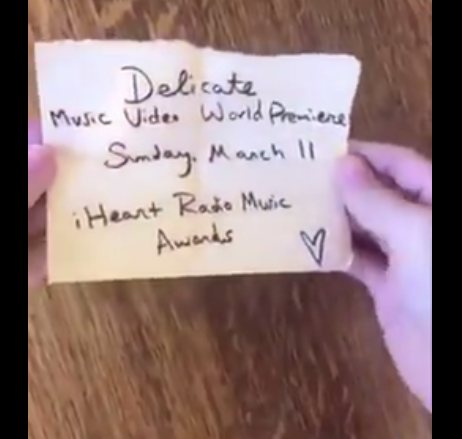 Delicate
Music Video World Premiere
Sunday, March 11
iHeart Radio Music
Awards